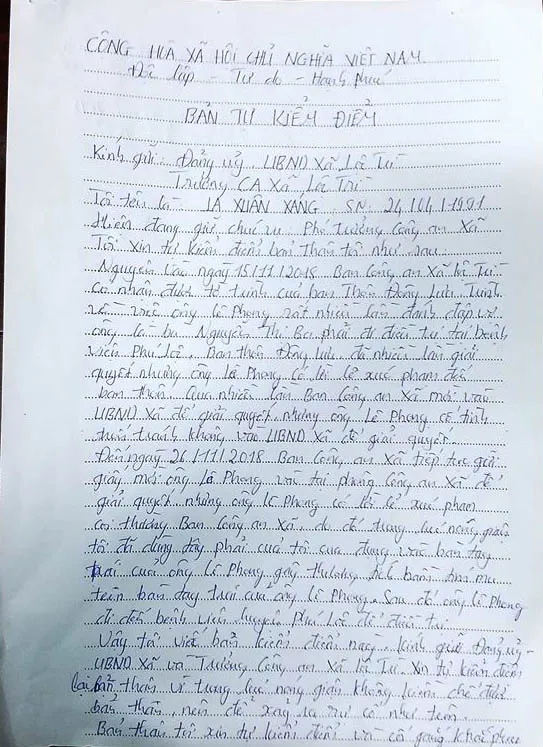 CÔNG HÒA XÃ HÔI CHỦ NGHĨA VIỆT NAM
Đôc lâp - Tư do - Hanh phuc
BẢN TỰ KIỂM ĐIỂM
Kinh gửi: Đảng uỷ, UBND Xã Lôc Tri
Trưởng CA Xã Lôc Tri
Tôi tên là LA XUÂN XÁNG SN: 24/04/1981
Hiên đang giữ chưc vu: Phó Trưởng Công an Xã
Tôi xin tư kiểm điểm bản Thân tôi như sau
Nguyên vào ngày 15/11/2018 Ban Công an Xã Lôc Tri
có nhân đươc tơ trinh của ban Thôn Đông Lưu Trinh
về viêc ông Lê Phong rất nhiều lần đánh đâp vơ
ông là bà Nguyễn Thi Ba phải đi điều tri tai bênh
viên Phu Lôc. Ban thôn Đông Lưu đã nhiều lần giải
quyết nhưng ông Lê Phong có lời lẽ xuc pham đến
ban thôn. Qua nhiều lần Ban Công an Xã mời vào
UBND Xã để giải quyết nhưng ông Lê Phong cố tinh
trốn tranh không vào UBND Xã để giải quyết.
Đến ngày 26/11/2018 Ban Công an Xã tiếp tuc gửi
giấy mời ông Lê Phong vào tai phòng Công an Xã để
giải quyết nhưng ông Lê Phong có lời lẽ xuc pham
coi thường Ban Công an Xã, do đó trong luc nóng giân
tôi đã dùng tây phải của tôi đung vào ban tay
trai của ông Lê Phong gây thương tich bầm tim mu
trên bàn tay trai của ông Lê Phong. Sau đó ông Lê Phong
đi đến bênh viên huyên Phu Lôc để điều tri
Vây tôi viết bản kiểm điểm này, kinh gửi Đảng uỷ -
UBND Xã và Trưởng Công an Xã Lôc Tri. Xin tư kiểm điểm
lai bản thân vì trong luc nóng giân không kiềm chế đươc
bản thân, nên để xảy ra sư cố như trên.
Bản thân tôi xin tư kiểm điểm và cố gắng khăc phuc